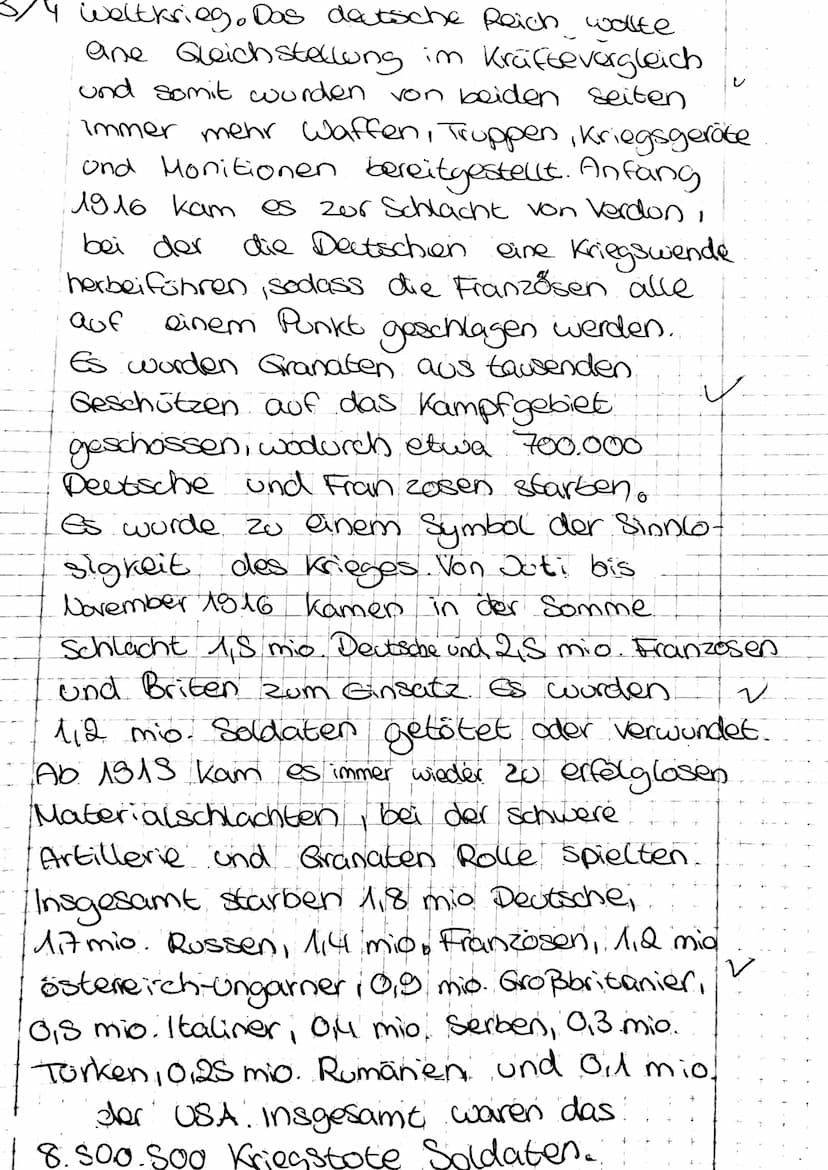 3/4 Weltkrieg. Das deutsche Reich wollte
eine Gleichstellung im Kräftevergleich
und somit wurden von beiden seiten
immer mehr Waffen, Truppen, Kriegsgeräte
und Monitionen bereitgestellt. Anfang
1916 kam es zur Schlacht von Verdun,
bei der die Deutschen eine Kriegswende
herbeiführen, sodass die Franzősen alle
auf einem Punkt geschlagen werden.
Es wurden Granaten aus tausenden
Geschützen auf das Kampfgebiet
geschossen, wodurch etwa 700.000
Deutsche und Franzosen starben.
Es wurde zu einem Symbol der Sinnlo-
sigkeit des Krieges. Von Juti bis
November 1916 kamen in der Somme
Schlacht 1,5 mio. Deutsche und 2,5 mio. Franzosen
und Briten zum Einsatz. Es wurden
1,2 mio. Soldaten getötet oder verwundet.
Ab 1915 kam es immer wieder zu erfolglosen
Materialschlachten, bei der schwere
Artillerie und Granaten Rolle spielten.
Insgesamt starben 1,8 mio Deutsche,
1,7 mio. Russen, 1,4 mio. Franzosen, 1,2 mio
östereirch-Ungarner, 0,9 mio. Großbritanier,
0,5 mio. Italiner, 0,4 mio. Serben, 0,3 mio.
Türken, 0,25 mio. Rumänien und 0,1 mio.
der USA. Insgesamt waren das
8.500.500 Kriegstote Soldaten.